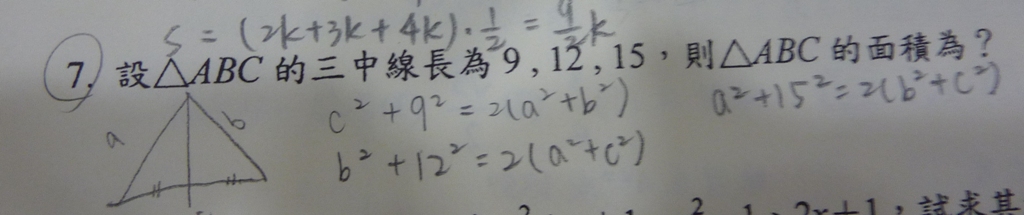 S = (2k+3k+4k)·1/2 = 9/2 k
7. 設△ABC 的三中線長為 9 , 12 , 15 , 則△ABC 的面積為？
c² + 9² = 2(a² + b²)
a² + 15² = 2(b² + c²)
a b
b² + 12² = 2(a² + c²)
2x+1 , 試求其